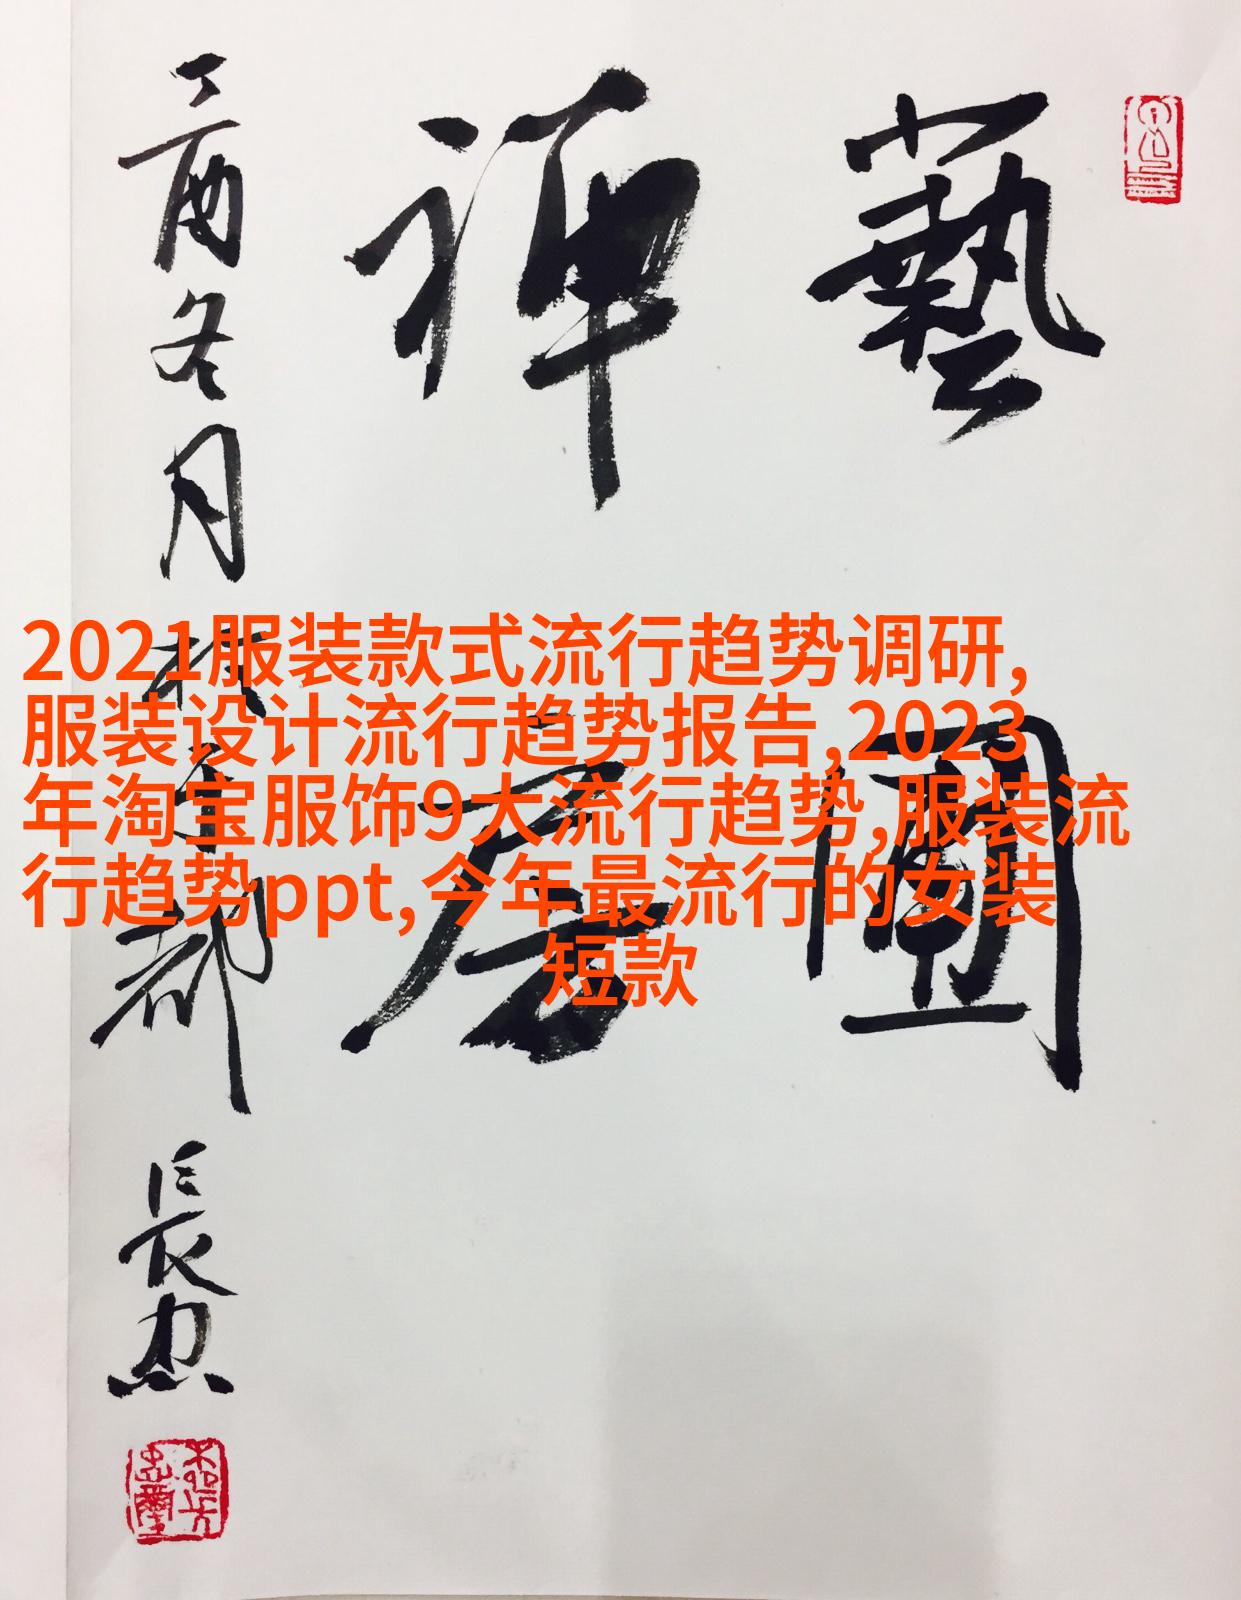 藝圃
禪房
丁酉冬月於京都
長忠
2021服装款式流行趋势调研,
服装设计流行趋势报告,2023
年淘宝服饰9大流行趋势,服装流
行趋势ppt,今年最流行的女装
短款